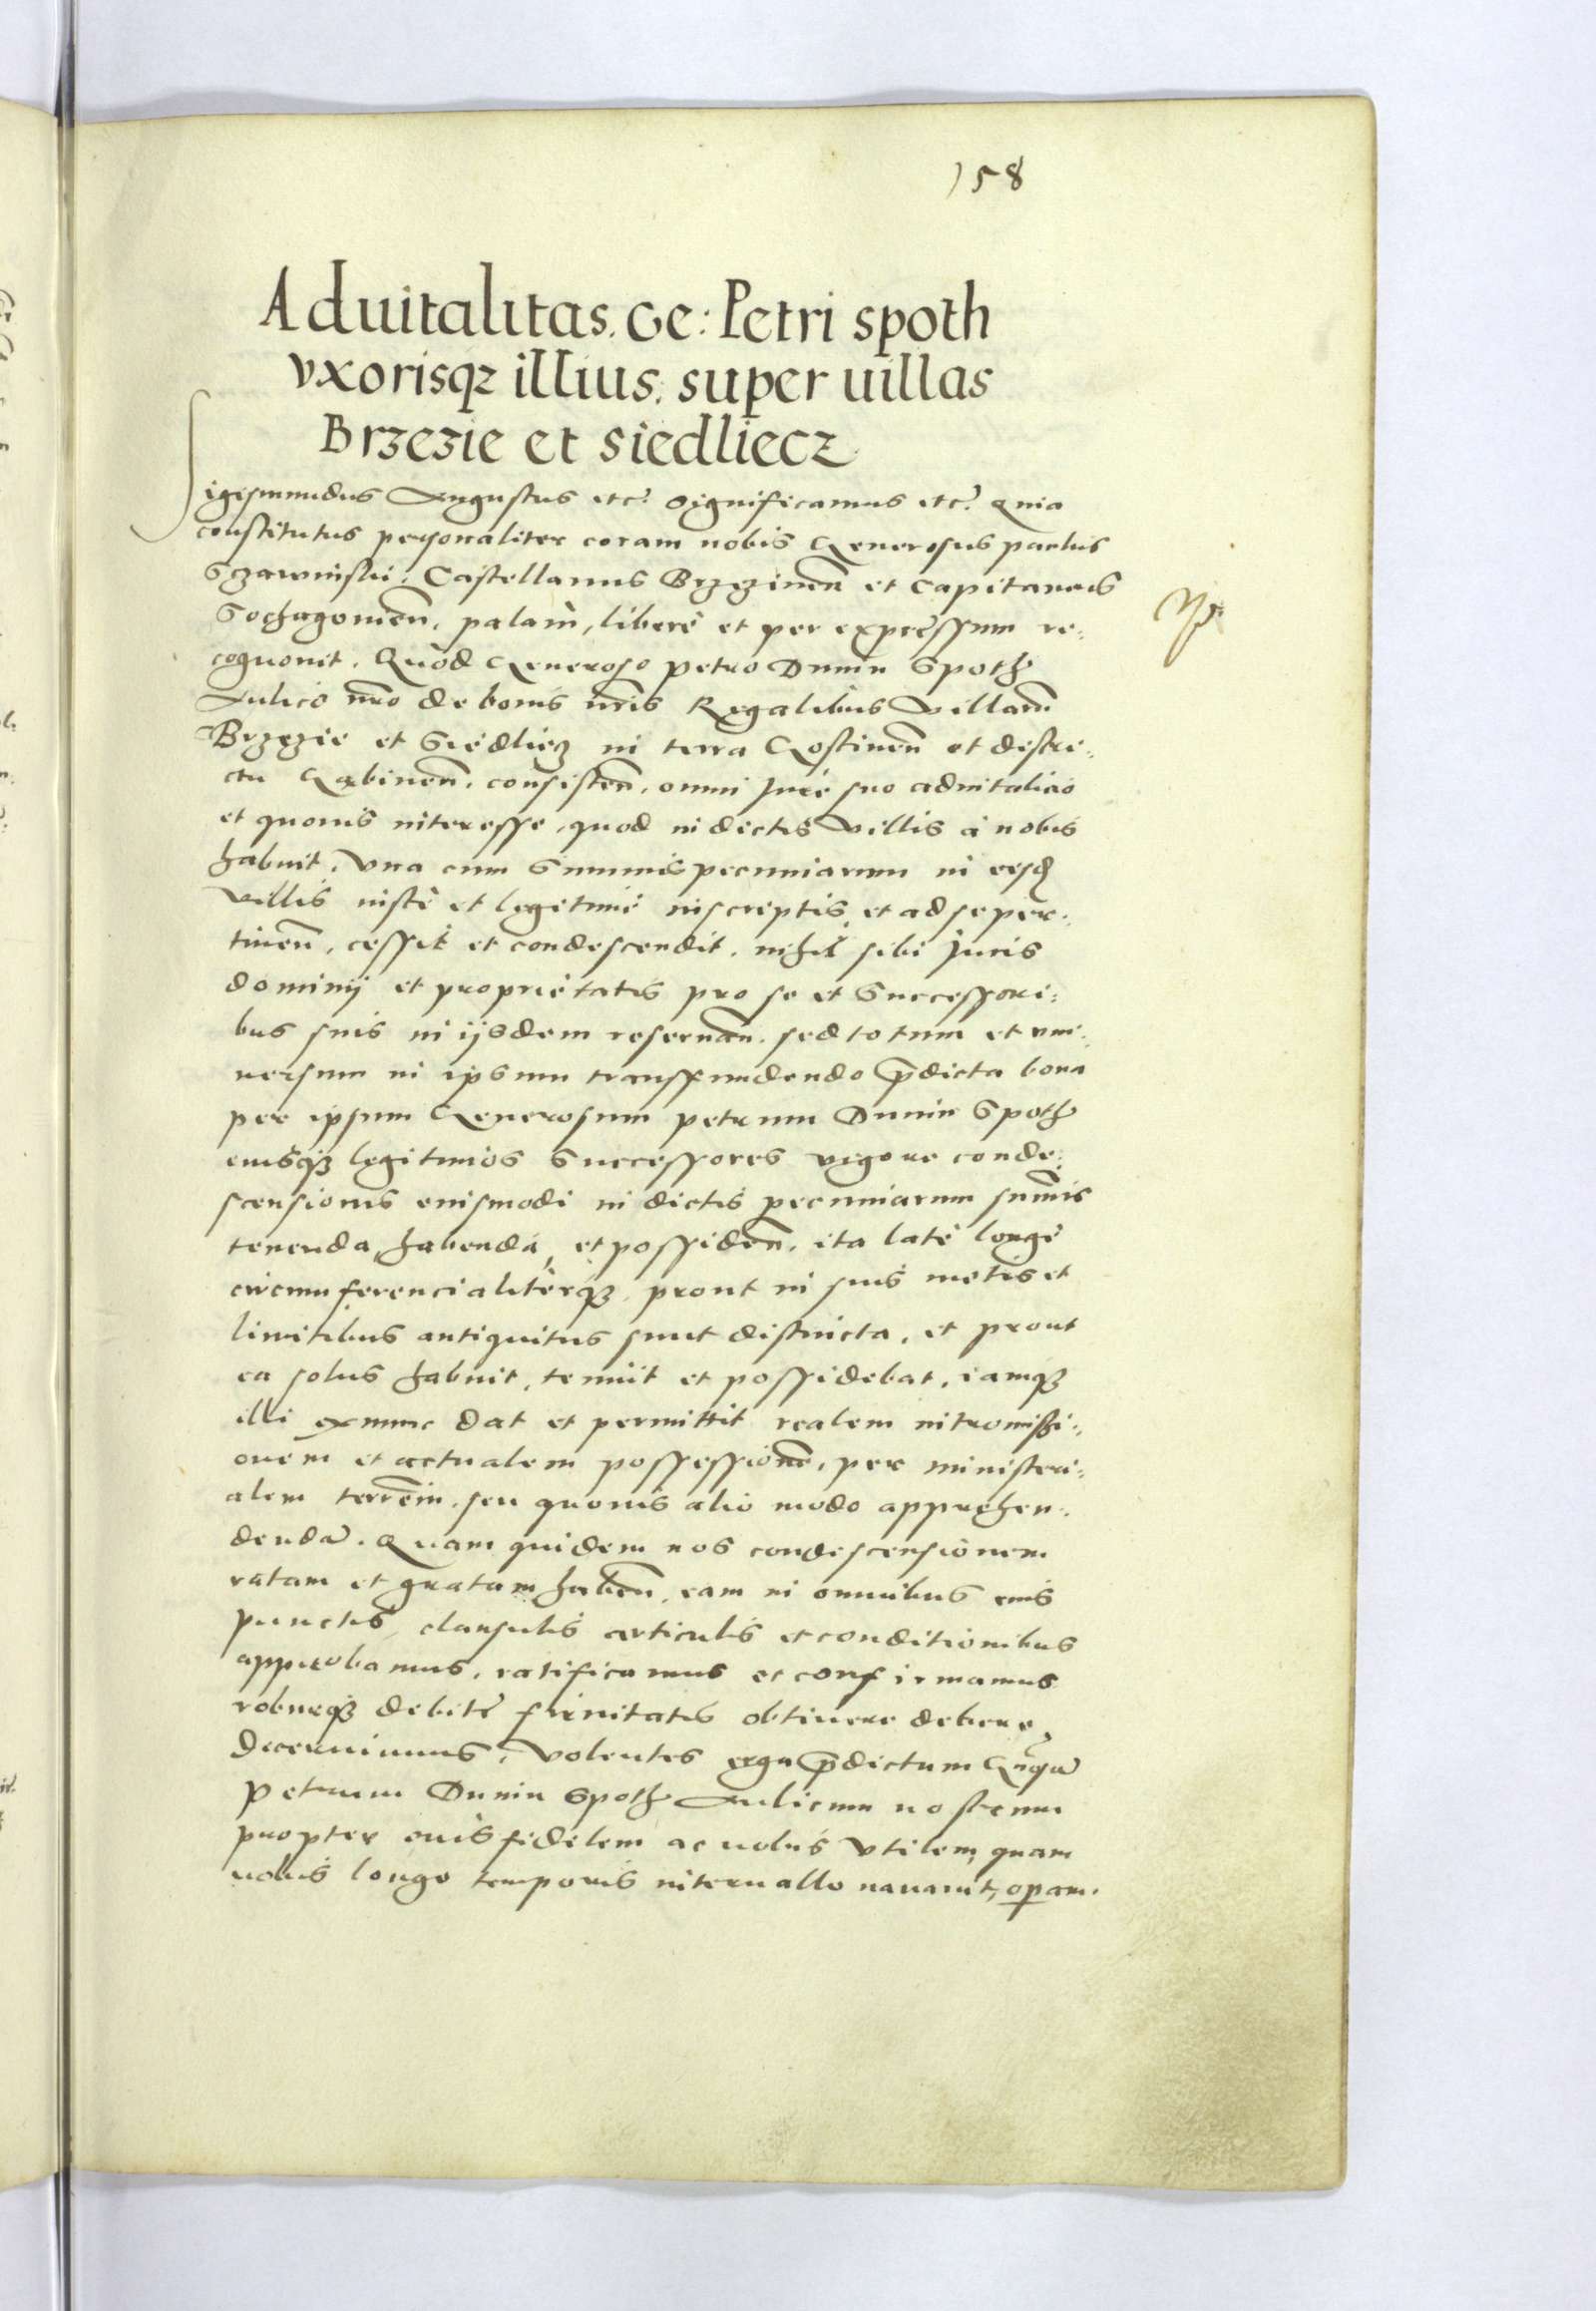 158
Aduitalitas. Ge: Petri spoth
vxorisqz illius. super uillas
Brzezie et siedliecz
Sigismundus Augustus etc. Significamus etc. Quia
constitutus personaliter coram nobis Generosus paulus
Szawinski. Castellanus Brzezinen̄ et Capitaneus
Sochagouien̄. palam, liberè et per expressum re:
cognouit. Quòd Generoso Petro Dunin Spoth
Aulico nr̄o de bonis nr̄is Regalibus Villam̄
Brzezie et Siedliecz in terra Gostinen̄ et distri:
ctu Gabinen̄. consisten̄. omni Jure suo aduitalicio
et quouis interesse, quod in dictis Villis à nobis
habuit. Vna cum Summis pecuniarum in eisd
Villis iustè et legitimè inscriptis, et ad se per:
tinen̄. cessit et condescendit. nihil sibi Juris
dominij et proprietatis pro se et Successori:
bus suis in ijsdem reseruan̄. sed totum et vni:
uersum in ipsum transfundendo p̄dicta bona
per ipsum Generosum petrum Dunin Spoth
eiusqz legitimos Successores vigore conde:
scensionis eiusmodi in dictis pecuniarum sum̄is
tenenda, habenda, et possiden̄. ita latè longè
circumferencialiterqz. prout in suis metis et
limitibus antiquitus sunt distincta, et prout
ea solus habuit, tenuit et possidebat, iamqz
illi exnunc dat et permittit realem intromissi:
onem et actualem possessionē, per ministeri:
alem terren̄. seu quouis alio modo apprehen:
dendā. Quam quidem nos condescensionem
ratam et gratam haben̄. eam in omnibus eius
punctis, clausulis articulis et conditionibus
approbamus, ratificamus et confirmamus
roburqz debitę firmitatis obtinere debere,
Decernimus. Volentes erga p̄dictum
Petrum Dunin Spoth Aulicum nostrum
propter eius fidelem ac nobis Vtilem, quam
nobis longo temporis interuallo nauauit, operam.